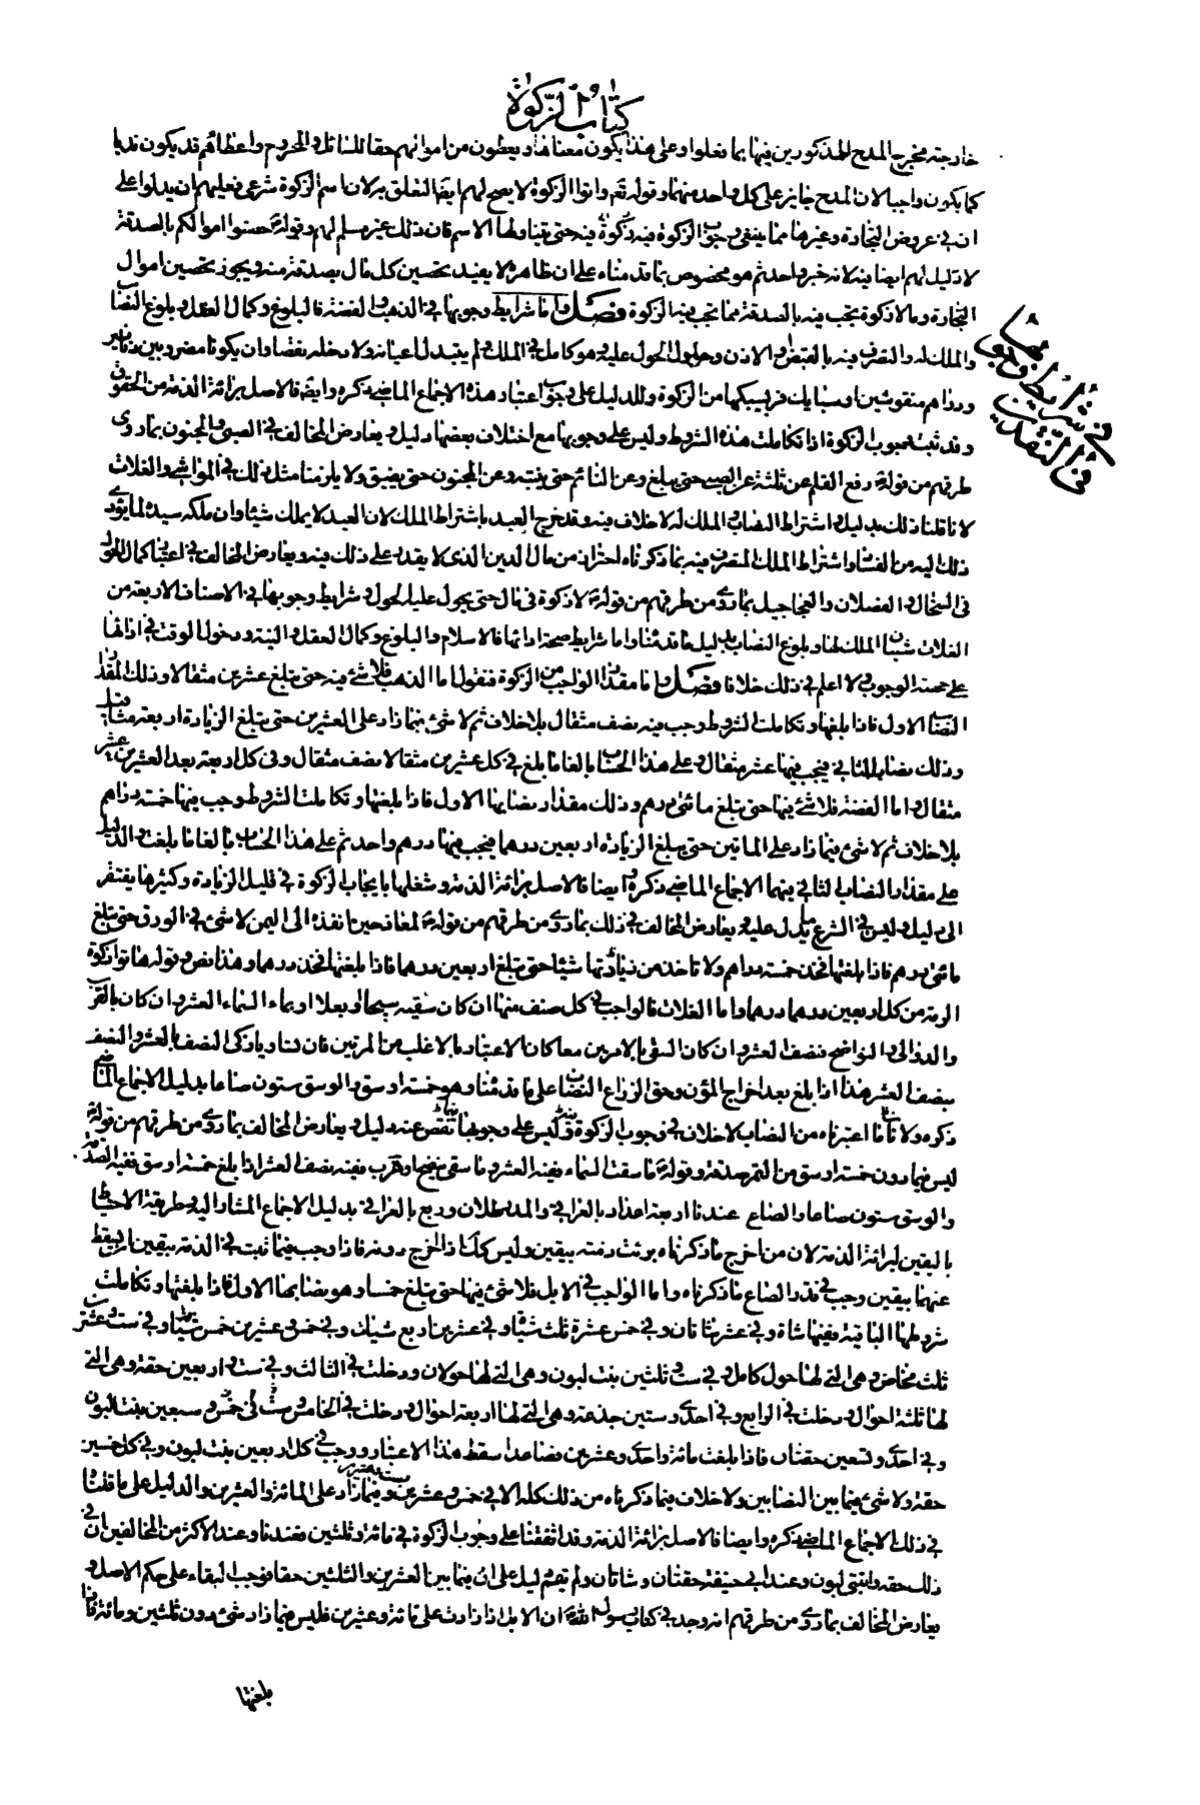 كتاب الزكوة
خارجة مخرج المدح للمذكورين فيها بما فعلوا وعلى هذا يكون معناها ويعطون من اموالهم حقا للسائل والمحروم واعطاؤهم قد يكون ندبا
كما يكون واجبا لان المدح جايز على كل واحد منهما وقوله تع واتوا الزكوة لا يصح لهم ايضا التعلق به لان اسم الزكوة شرعى فعليهم ان يدلوا على
ان في عروض التجارة وغيرها مما ينفى وجوب الزكوة فيه زكوة فيه حتى يتناولها الاسم فان ذلك غير مسلم لهم وقوله حصنوا اموالكم بالصدقة
لا دليل لهم ايضا فيه لانه خبر واحد ثم هو مخصوص بما قدمناه على ان ظاهره لا يفيد تحصين كل مال بصدقة منه ويجوز تحصين اموال
التجارة وما لا زكوة يجب فيه بالصدقة مما تجب فيه الزكوة فصل واما شرايط وجوبها في الذهب والفضة فالبلوغ وكمال العقل وبلوغ النصاب
والملك له والتصرف فيه بالقبض او الاذن وحلول الحول عليه وهو كامل في الملك ولم يتبدل اعيانه ولا دخله نقصان وان يكونا مضروبين دنانير
ودراهم منقوشين او سبايك فر بسبكها من الزكوة والدليل على وجوب اعتبار هذه الاجماع الماضى ذكره وايضا فالاصل برائة الذمة من الحقوق
وقد ثبت وجوب الزكوة اذا تكاملت هذه الشروط وليس على وجوبها مع اختلاف بعضها دليل ويعارض المخالف في الصبي والمجنون بما روى
من طرقهم من قوله رفع القلم عن ثلثة عن الصبى حتى يبلغ وعن النائم حتى ينتبه وعن المجنون حتى يفيق ولا يلزمنا مثل ذلك في المواشى والغلات
لانا قلنا ذلك بدليل واشتراط النصاب والملك له لا خلاف فيه وقد خرج العبد باشتراط الملك لان العبد لا يملك شيئا وان ملكه سيده لما يؤدى
ذلك اليه من الفساد واشتراط الملك المتصرف فيه بما ذكرناه احتراز من مال الدين الذى لا يقدر على ذلك فيه ويعارض المخالف في اعتبار كمال الحول
في السخال والفصلان والعجاجيل بما روى من طرقهم من قوله لا زكوة في مال حتى يحول عليه الحول وشرايط وجوبها في الاصناف الاربعة من
الغلات شيئان الملك لها وبلوغ النصاب بدليل ما قدمناه واما شرايط صحة ادائها فالاسلام والبلوغ وكمال العقل والنية ودخول الوقت في ادائها
على جهة الوجوب ولا اعلم في ذلك خلافا فصل واما مقدار الواجب من الزكوة فنقول اما الذهب فلا شئ فيه حتى يبلغ عشرين مثقالا وذلك مقدار
النصاب الاول فاذا بلغها وتكاملت الشروط وجب فيه نصف مثقال بلا خلاف ثم لا شئ فيما زاد على العشرين حتى تبلغ الزيادة اربعة مثاقيل
وذلك نصابه الثاني فيجب فيها عشر مثقال وعلى هذا الحساب بالغا ما بلغ في كل عشرين مثقالا نصف مثقال وفي كل اربعة بعد العشرين عشر
مثقال واما الفضة فلا شئ فيها حتى تبلغ مائتى درهم وذلك مقدار نصابها الاول فاذا بلغتها وتكاملت الشروط وجب فيها خمسة دراهم
بلا خلاف ثم لا شئ فيما زاد على المائتين حتى يبلغ الزيادة اربعين درهما فيجب فيها درهم واحد ثم على هذا الحساب بالغا ما بلغت والدليل
على مقدار النصاب الثاني فيهما الاجماع الماضى ذكره وايضا فالاصل برائة الذمة وشغلها بايجاب الزكوة في قليل الزيادة وكثيرها يفتقر
الى دليل وليس في الشرع ما يدل عليه ويعارض المخالف في ذلك بما روى من طرقهم من قوله لمعاذ حين انفذه الى اليمن لا شئ في الورق حتى تبلغ
مائتى درهم فاذا بلغتها فخذ خمسة دراهم ولا تاخذ من زيادتها شيئا حتى تبلغ اربعين درهما فاذا بلغتها فخذ درهما وهذا نص وقوله هاتوا زكوة
الرقة من كل اربعين درهما درهما واما الغلات فالواجب في كل صنف منها ان كان سقيه سيحا او بعلا او بماء السماء العشر وان كان بالغرب
والدوالى والنواضح فنصف العشر وان كان السقى بالامرين معا كان الاعتبار بالاغلب من المرتين فان تساويا زكى النصف بالعشر والنصف
بنصف العشر هذا اذا بلغ بعد اخراج المؤن وحق الزراع النصاب على ما قدمناه وهو خمسة اوسق والوسق ستون صاعا بدليل الاجماع الماضى
ذكره ولان ما اعتبرناه من النصاب لا خلاف في وجوب الزكوة فيه وليس على وجوبها فيما نقص عنه دليل ويعارض المخالف بما روى من طرقهم من قوله
ليس فيما دون خمسة اوسق من التمر صدقة وقوله ما سقت السماء ففيه العشر وما سقى بنضح او غرب ففيه نصف العشر اذا بلغ خمسة اوسق ففيه الصدقة
والوسق ستون صاعا والصاع عندنا اربعة امداد بالعراقي والمد رطلان وربع بالعراقي بدليل الاجماع المشار اليه وطريقة الاحتياط
باليقين لبرائة الذمة لان من اخرج ما ذكرناه برئت ذمته بيقين وليس كذلك اذا اخرج دونه فاذا وجب فيما ثبت في الذمة بيقين ان يسقط
عنها بيقين وجب في قدر الصاع ما ذكرناه واما الواجب في الابل فلا شئ فيها حتى تبلغ خمسا وهو نصابها الاول فاذا بلغتها وتكاملت
شروطها الباقية ففيها شاة وفي عشر شاتان وفي خمس عشرة ثلث شياه وفي عشرين اربع شياه وفي خمس وعشرين خمس شياه وفي ست وعشرين
بنت مخاض وهى التى لها حول كامل وفي ست وثلثين بنت لبون وهى التى لها حولان ودخلت في الثالث وفي ست واربعين حقة وهى التى
لها ثلثة احوال ودخلت في الرابع وفي احدى وستين جذعة وهى التى لها اربعة احوال ودخلت في الخامس وفي ست وسبعين بنتا لبون
وفي احدى وتسعين حقتان فاذا بلغت مائة واحدى وعشرين فصاعدا سقط هذا الاعتبار ووجب في كل اربعين بنت لبون وفي كل خمسين
حقة ولا شئ فيما بين النصابين ولا خلاف فيما ذكرناه من ذلك كله الا في خمس وعشرين وست وعشرين وفيما زاد على المائة والعشرين والدليل على ما قلناه
في ذلك الاجماع الماضى ذكره وايضا فالاصل برائة الذمة وقد اتفقنا على وجوب الزكوة في مائة وثلثين فعندنا وعند الاكثر من المخالفين ان في
ذلك حقة وابنتى لبون وعند ابى حنيفة حقتان وشاتان ولم يقم دليل على ان فيما بين العشرين والثلثين حقا فوجب البقاء على حكم الاصل و
يعارض المخالف بما روى من طرقهم انه وجد في كتاب رسول الله ان الابل اذا زادت على مائة وعشرين فليس فيما زاد شئ دون ثلثين ومائة فاذا
بلغتها
في شرايط وجوبها
في النقدين